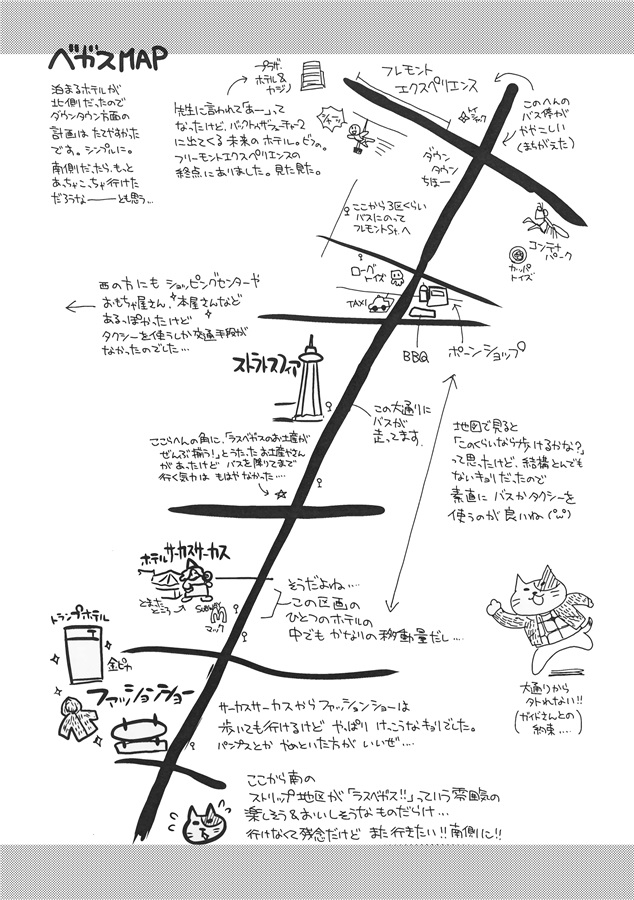 ベガスMAP
泊まるホテルが
北側だったので
ダウンタウン方面の
計画は たてやすかた
です。シンプルに。
南側だったら、もっと
あちゃこっちゃ行けた
だろうな――とも思う…
プラザ
ホテル&
カジノ
先生に言われて「あー」って
なったけど、バックトゥザフューチャー2
に出てくる 未来の ホテル。ビフの。
フリーモントエクスペリエンスの
終点にありました。見た見た。
フレモント
エクスペリエンス
シャーッ
トイ
シャック
このへんの
バス停が
ややこしい
(まちがえた)
ダウン
タウン
ちほー
コンテナ
パーク
カッパ
トイズ
ここから3区くらい
バスにのって
フレモントSt.へ
ローグ
トイズ
TAXI
BBQ
ポーンショップ
西の方にも ショッピングセンターや
おもちゃ屋さん、本屋さんなど
あるっぽかったけど
タクシーを使うしか交通手段が
なかったのでした…
ストラトスフィア
この大通りに
バスが
走ってます。
ここらへんの角に、「ラスベガスのお土産が
ぜんぶ揃う!」とうたったお土産やさん
があったけど バスを降りてまで
行く気力は もはやなかった…
地図で見ると
「このくらいなら歩けるかな?」
って思ったけど、結構とんでも
ないキョリだったので
素直に バスかタクシーを
使うのが 良いね('ω')
ホテルサーカスサーカス
とまった
ところ
SUBWAY
マック
そうだよね…
この区画の
ひとつのホテルの
中でも かなりの移動量だし…
トランプホテル
金ピカ
ファッションショー
サーカスサーカスから ファッションショーは
歩いても行けるけど やっぱり けっこうなキョリでした。
パンプスとか やめといた方が いいぜ…
大通りから
外れない!!
(ガイドさんとの
約束…)
ここから南の
ストリップ地区が「ラスベガス!!」っていう雰囲気の
楽しそう&おいしそうな ものだらけ…
行けなくて残念だけど また行きたい!!南側に!!